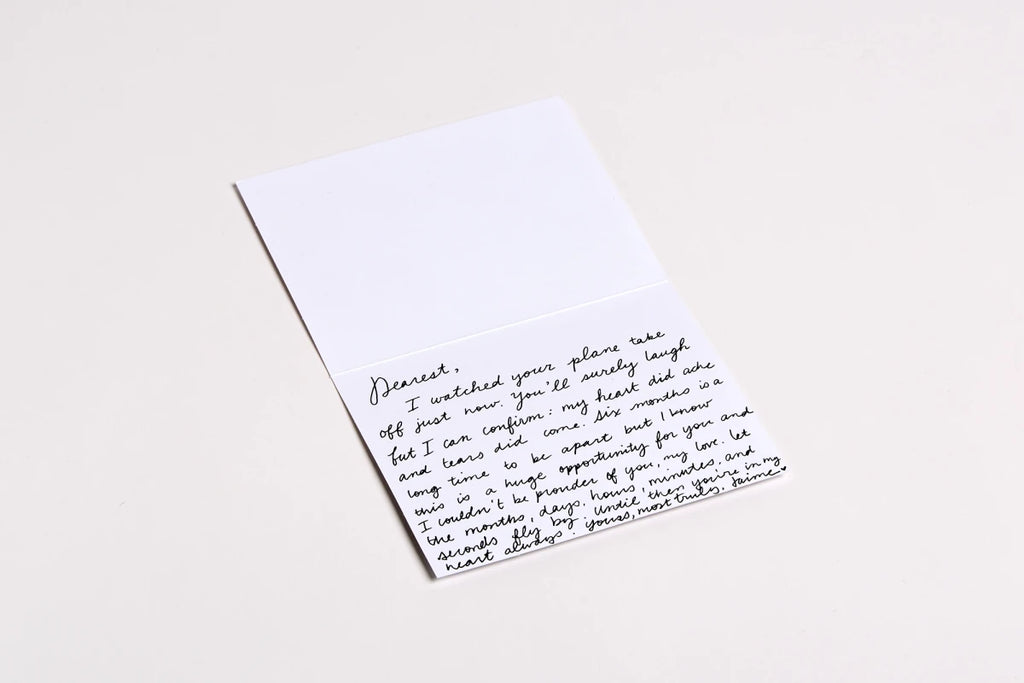 Dearest,
I watched your plane take
off just now. You'll surely laugh
but I can confirm: my heart did ache
and tears did come. Six months is a
long time to be apart but I know
this is a huge opportunity for you and
I couldn't be prouder of you, my love. Let
the months, days, hours, minutes, and
seconds fly by. Until then you're in my
heart always. Yours, most truly, Jaime ♥